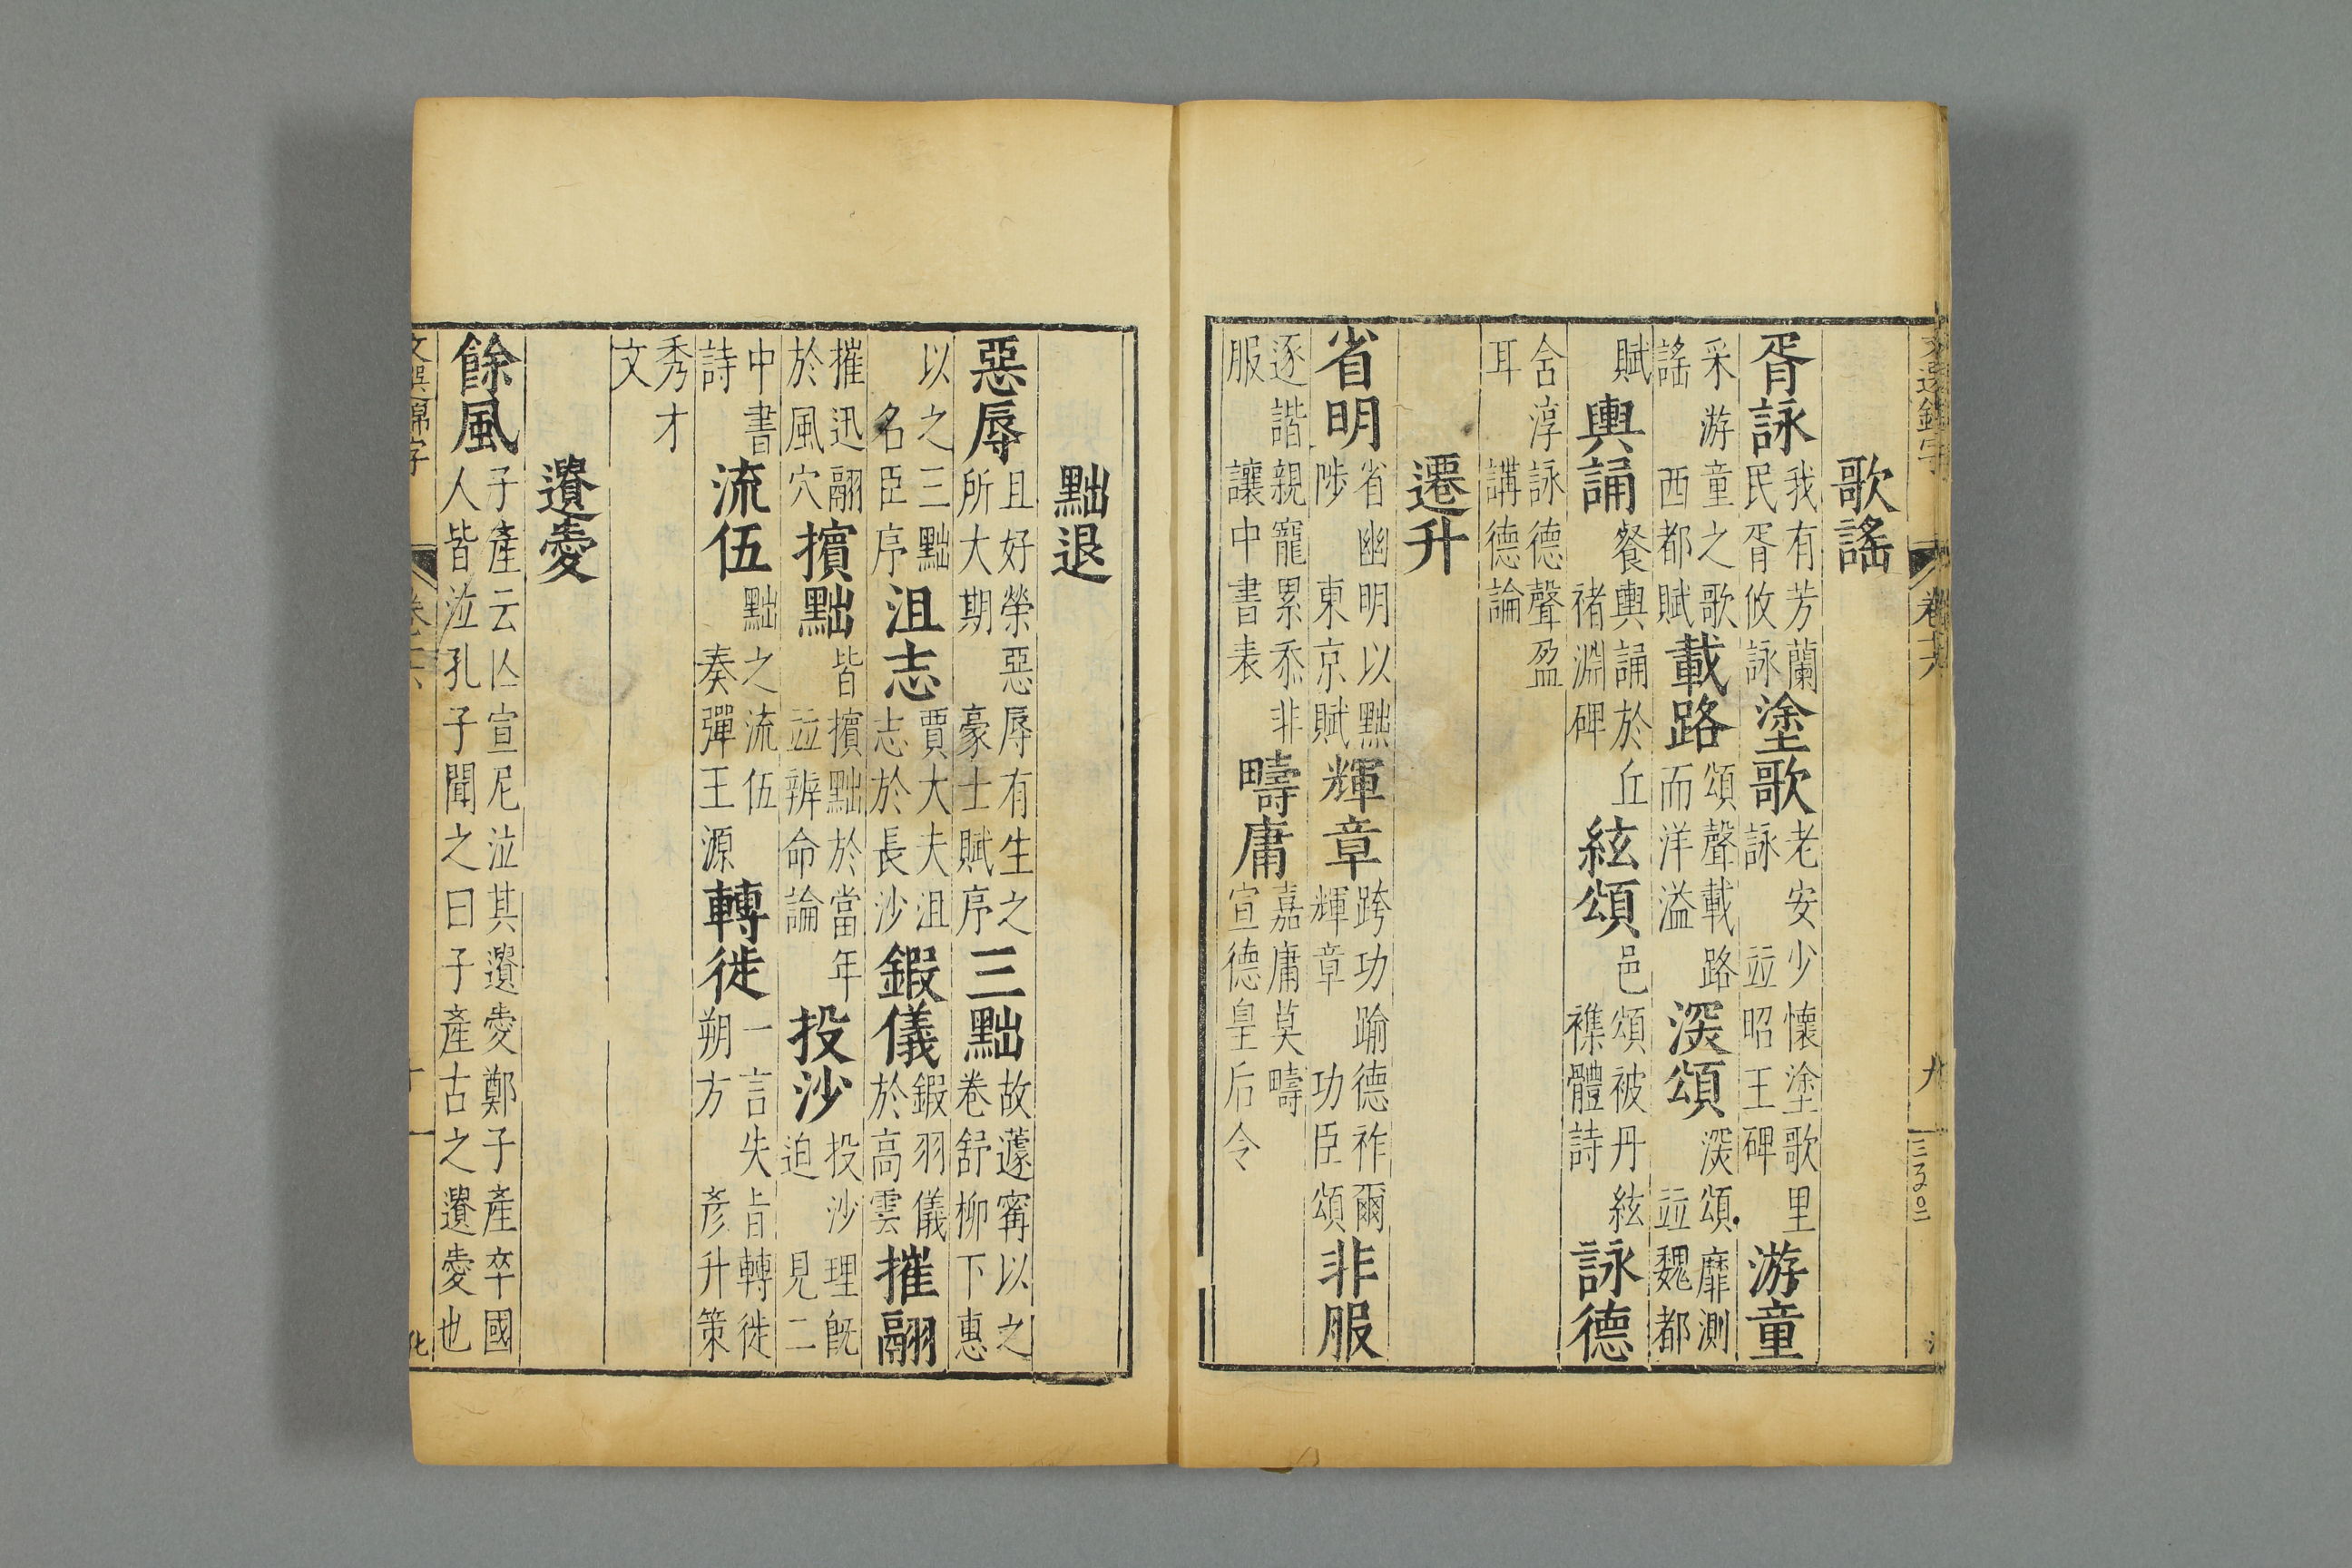 歌謠
胥詠 我有芳蘭民胥攸詠 塗歌 老安少懷塗歌里詠 竝昭王碑 游童
采游童之歌謠 西都賦 載路 頌聲載路而洋溢 深頌 深頌靡測 竝魏都
賦 輿誦 餐輿誦於丘 禇淵碑 絃頌 邑頌被丹絃 襍體詩 詠德
舍淳詠德聲盈耳 講德論
遷升
省明 省幽明以黜陟 東京賦 輝章 跨功踰德祚爾輝章 功臣頌 非服
逐諧親寵累忝非服 讓中書表 疇庸 嘉庸莫疇 宣德皇后令
黜退
惡辱 且好榮惡辱有生之所大期 豪士賦序 三黜 故蘧甯以之卷舒柳下惠
以之三黜 名臣序 沮志 賈大夫沮志於長沙 鎩儀 鎩羽儀於高雲 摧翮
摧迅翮於風穴 擯黜 皆擯黜於當年 竝辨命論 投沙 投沙理既迫 見二
中書詩 流伍 黜之流伍 奏彈王源 轉徙 一言失旨轉徙朔方 彥升策
秀才文
遺愛
餘風 子產云亾宣尼泣其遺愛鄭子產卒國人皆泣孔子聞之曰子產古之遺愛也
文選錦字 卷十六 九